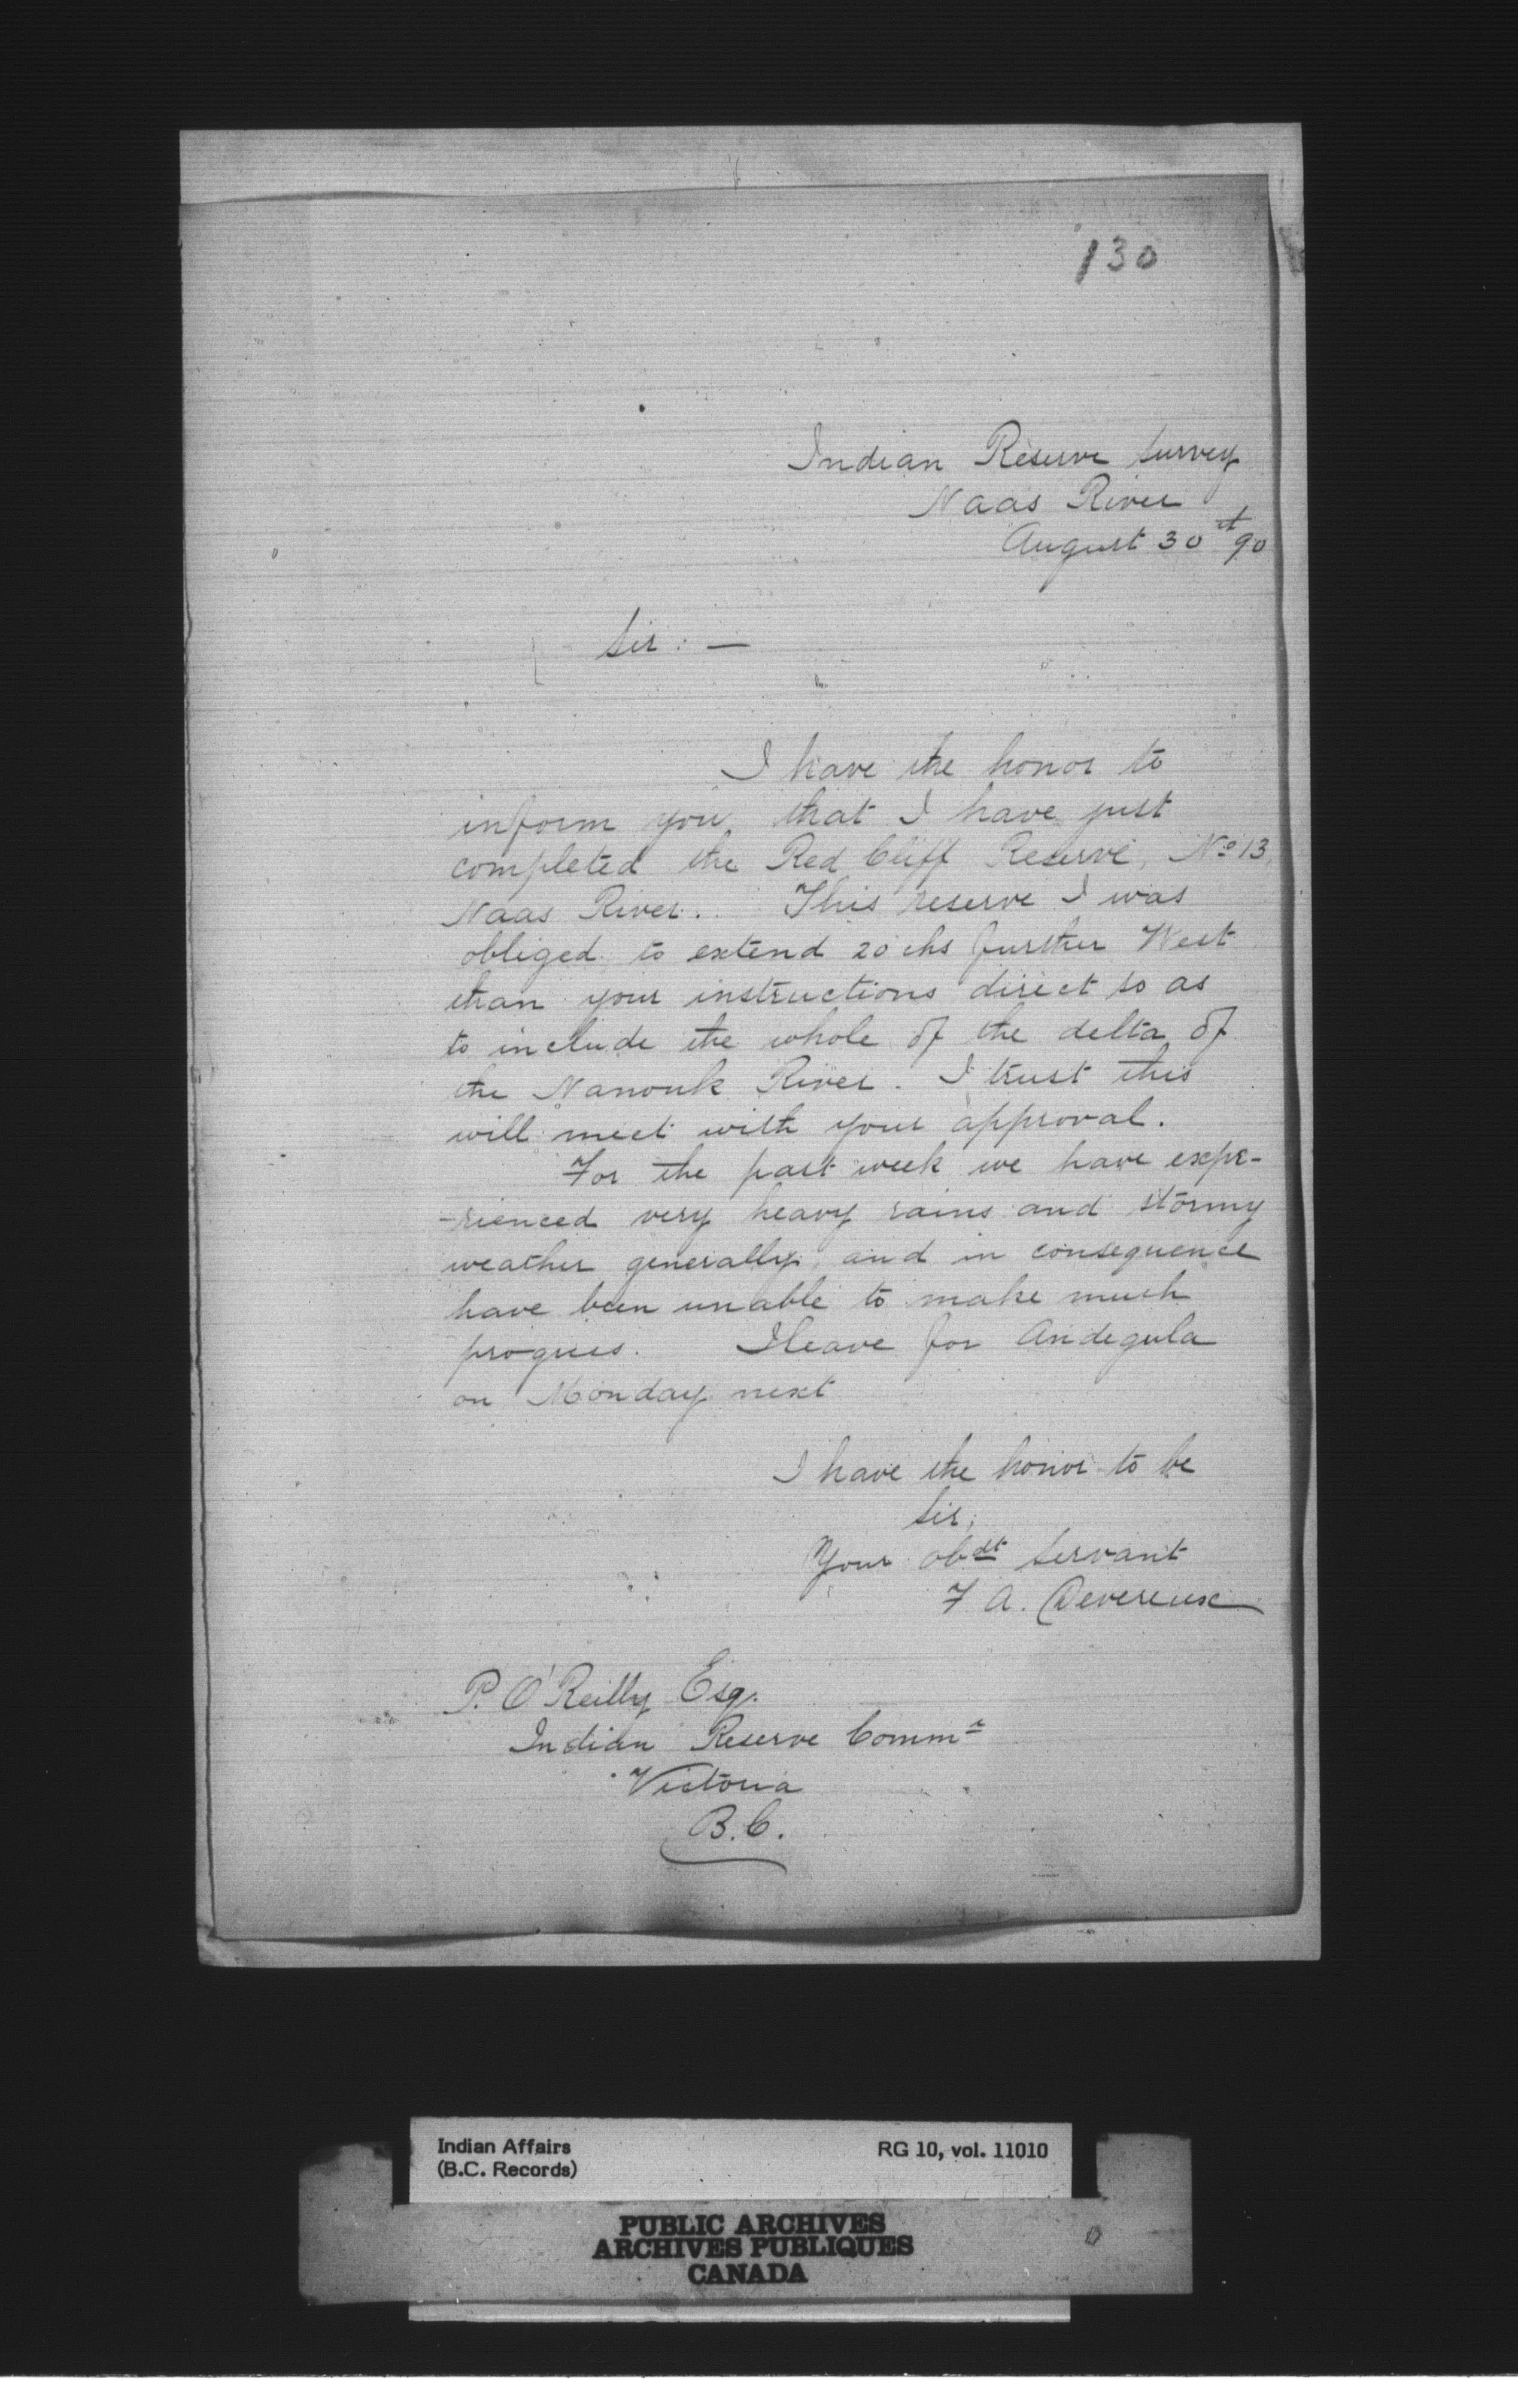 130
Indian Reserve Survey
Naas River
August 30th 90
Sir: —
I have the honor to
inform you, that I have just
completed the Red Cliff Reserve, No 13,
Naas River. This reserve I was
obliged to extend 20 chs further West
than your instructions direct so as
to include the whole of the delta of
the Nanouk River. I trust this
will meet with your approval.
For the past week we have expe-
-rienced very heavy rains and stormy
weather generally, and in consequence
have been unable to make much
progress. I leave for Andegula
on Monday next
I have the honor to be
Sir,
Your obdt Servant
F. A. Devereux
P. O'Reilly Esq.
Indian Reserve Commr
Victoria
B.C.
Indian Affairs RG 10, vol. 11010
(B.C. Records)
PUBLIC ARCHIVES
ARCHIVES PUBLIQUES
CANADA